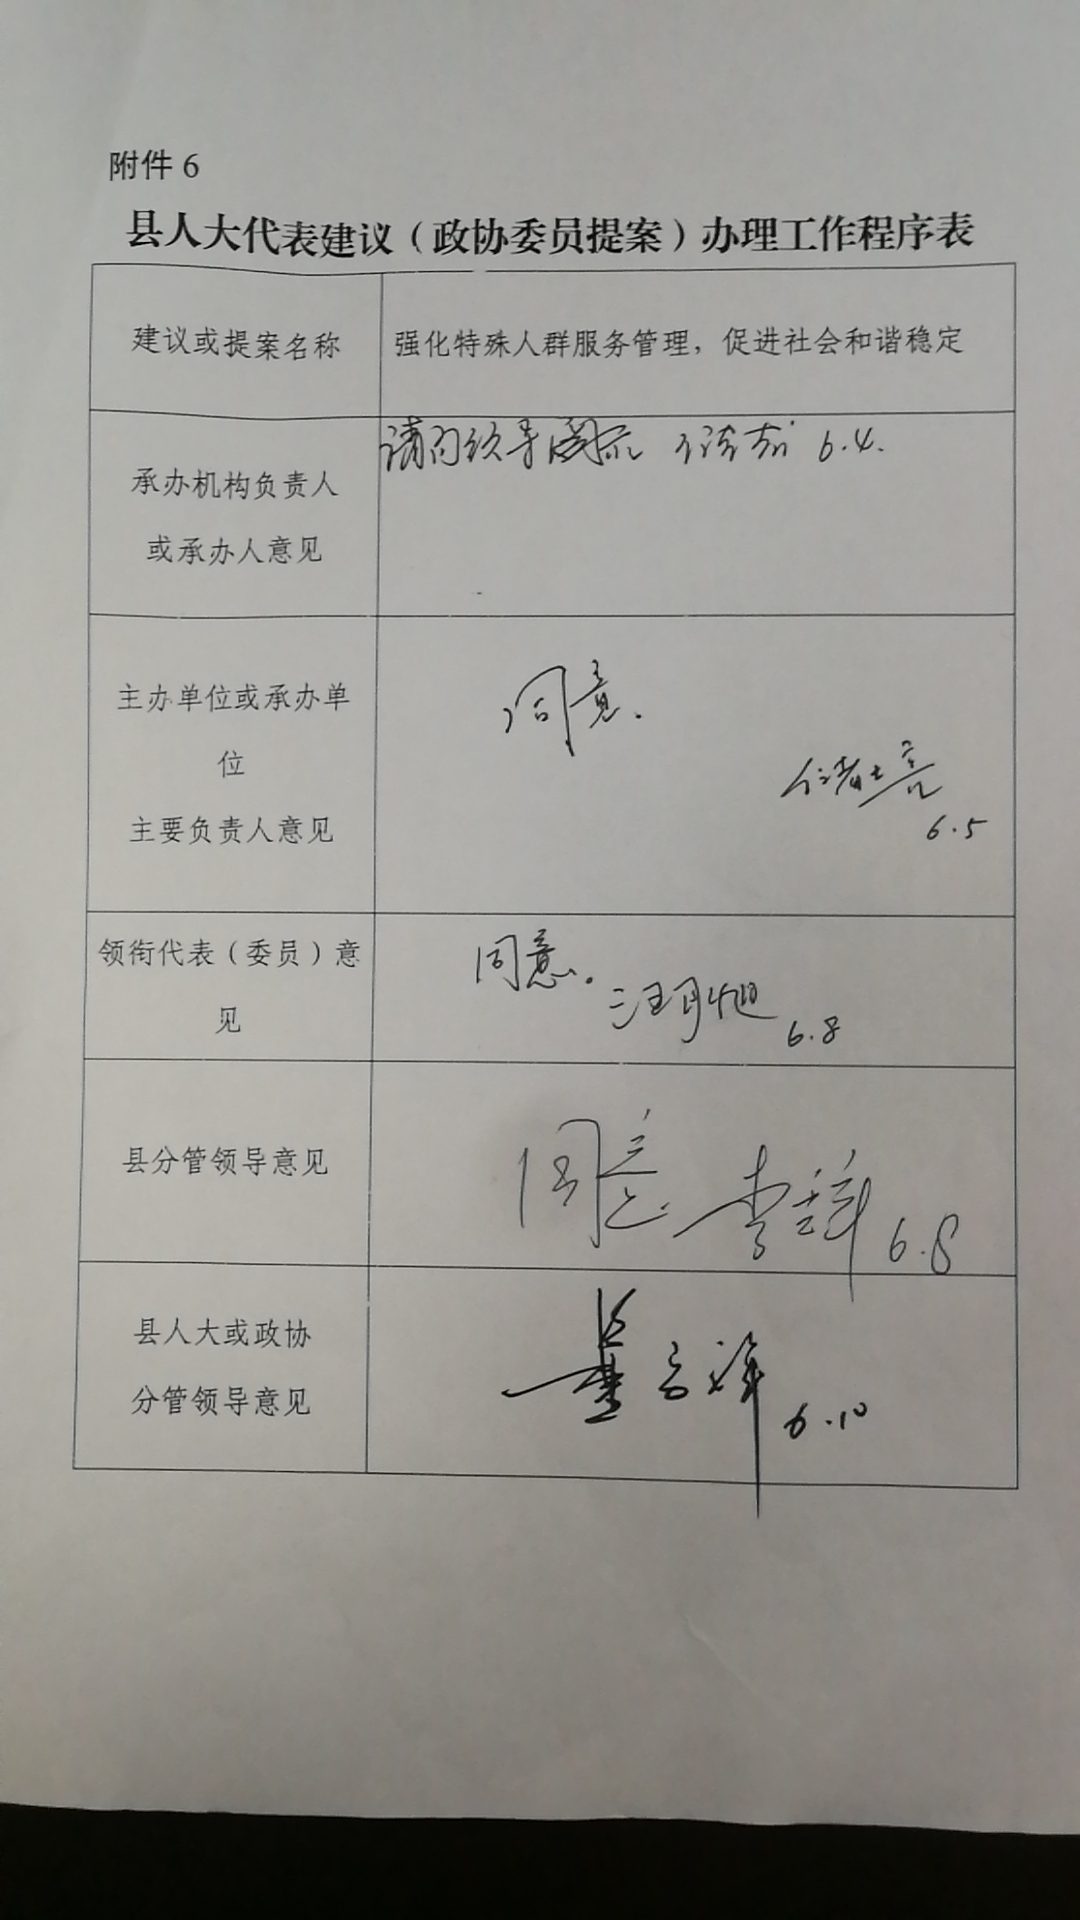 附件6
县人大代表建议（政协委员提案）办理工作程序表
建议或提案名称
强化特殊人群服务管理，促进社会和谐稳定
承办机构负责人
或承办人意见
请 领导阅示 6.4.
主办单位或承办单
位
主要负责人意见
同意.
6.5
领衔代表（委员）意
见
同意。
6.8
县分管领导意见
同意 李 6.8
县人大或政协
分管领导意见
6.10